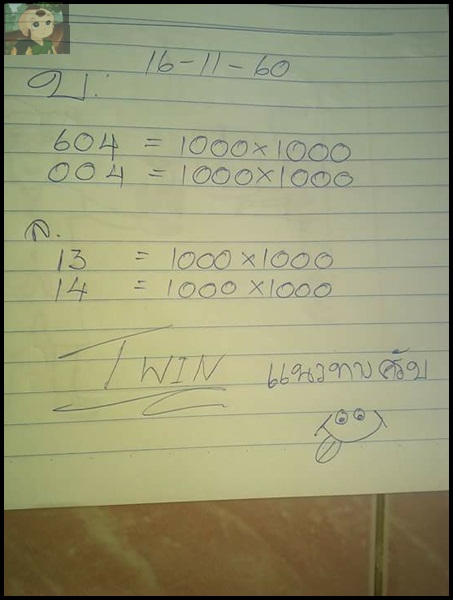 16-11-60
บ.
604 = 1000×1000
004 = 1000×1000
ล.
13 = 1000×1000
14 = 1000×1000
TWIN แนวทางครับ